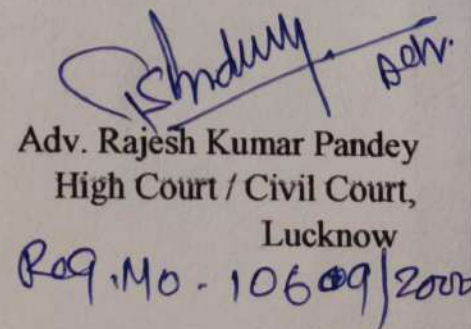 Adv.
Adv. Rajesh Kumar Pandey
High Court / Civil Court,
Lucknow
Reg.No - 10609/2000